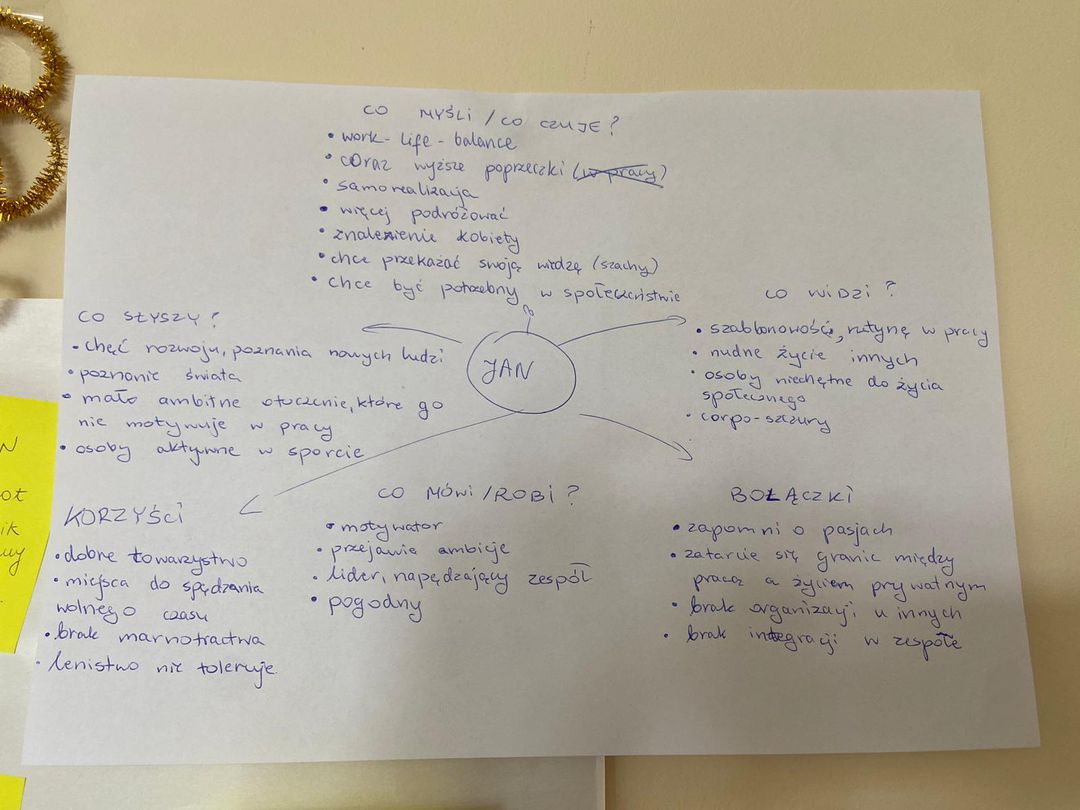 CO MYŚLI / CO CZUJE?
• work-life-balance
• coraz wyższe poprzeczki (w pracy)
• samorealizacja
• więcej podróżować
• znalezienie kobiety
• chce przekazać swoją wiedzę (szachy)
• chce być potrzebny w społeczeństwie
CO SŁYSZY?
• chęć rozwoju, poznania nowych ludzi
• poznanie świata
• mało ambitne otoczenie, które go
nie motywuje w pracy
• osoby aktywne w sporcie
JAN
CO WIDZI?
• szablonowość, rutynę w pracy
• nudne życie innych
• osoby niechętne do życia
społecznego
• corpo-szczury
KORZYŚCI
• dobre towarzystwo
• miejsca do spędzania
wolnego czasu
• brak marnotractwa
• lenistwo nie toleruje
CO MÓWI / ROBI?
• motywator
• przejawia ambicje
• lider, napędzający zespół
• pogodny
BOŁĄCZKI
• zapomni o pasjach
• zatarcie się granic między
pracą a życiem prywatnym
• brak organizacji u innych
• brak integracji w zespole
N
ot
ik